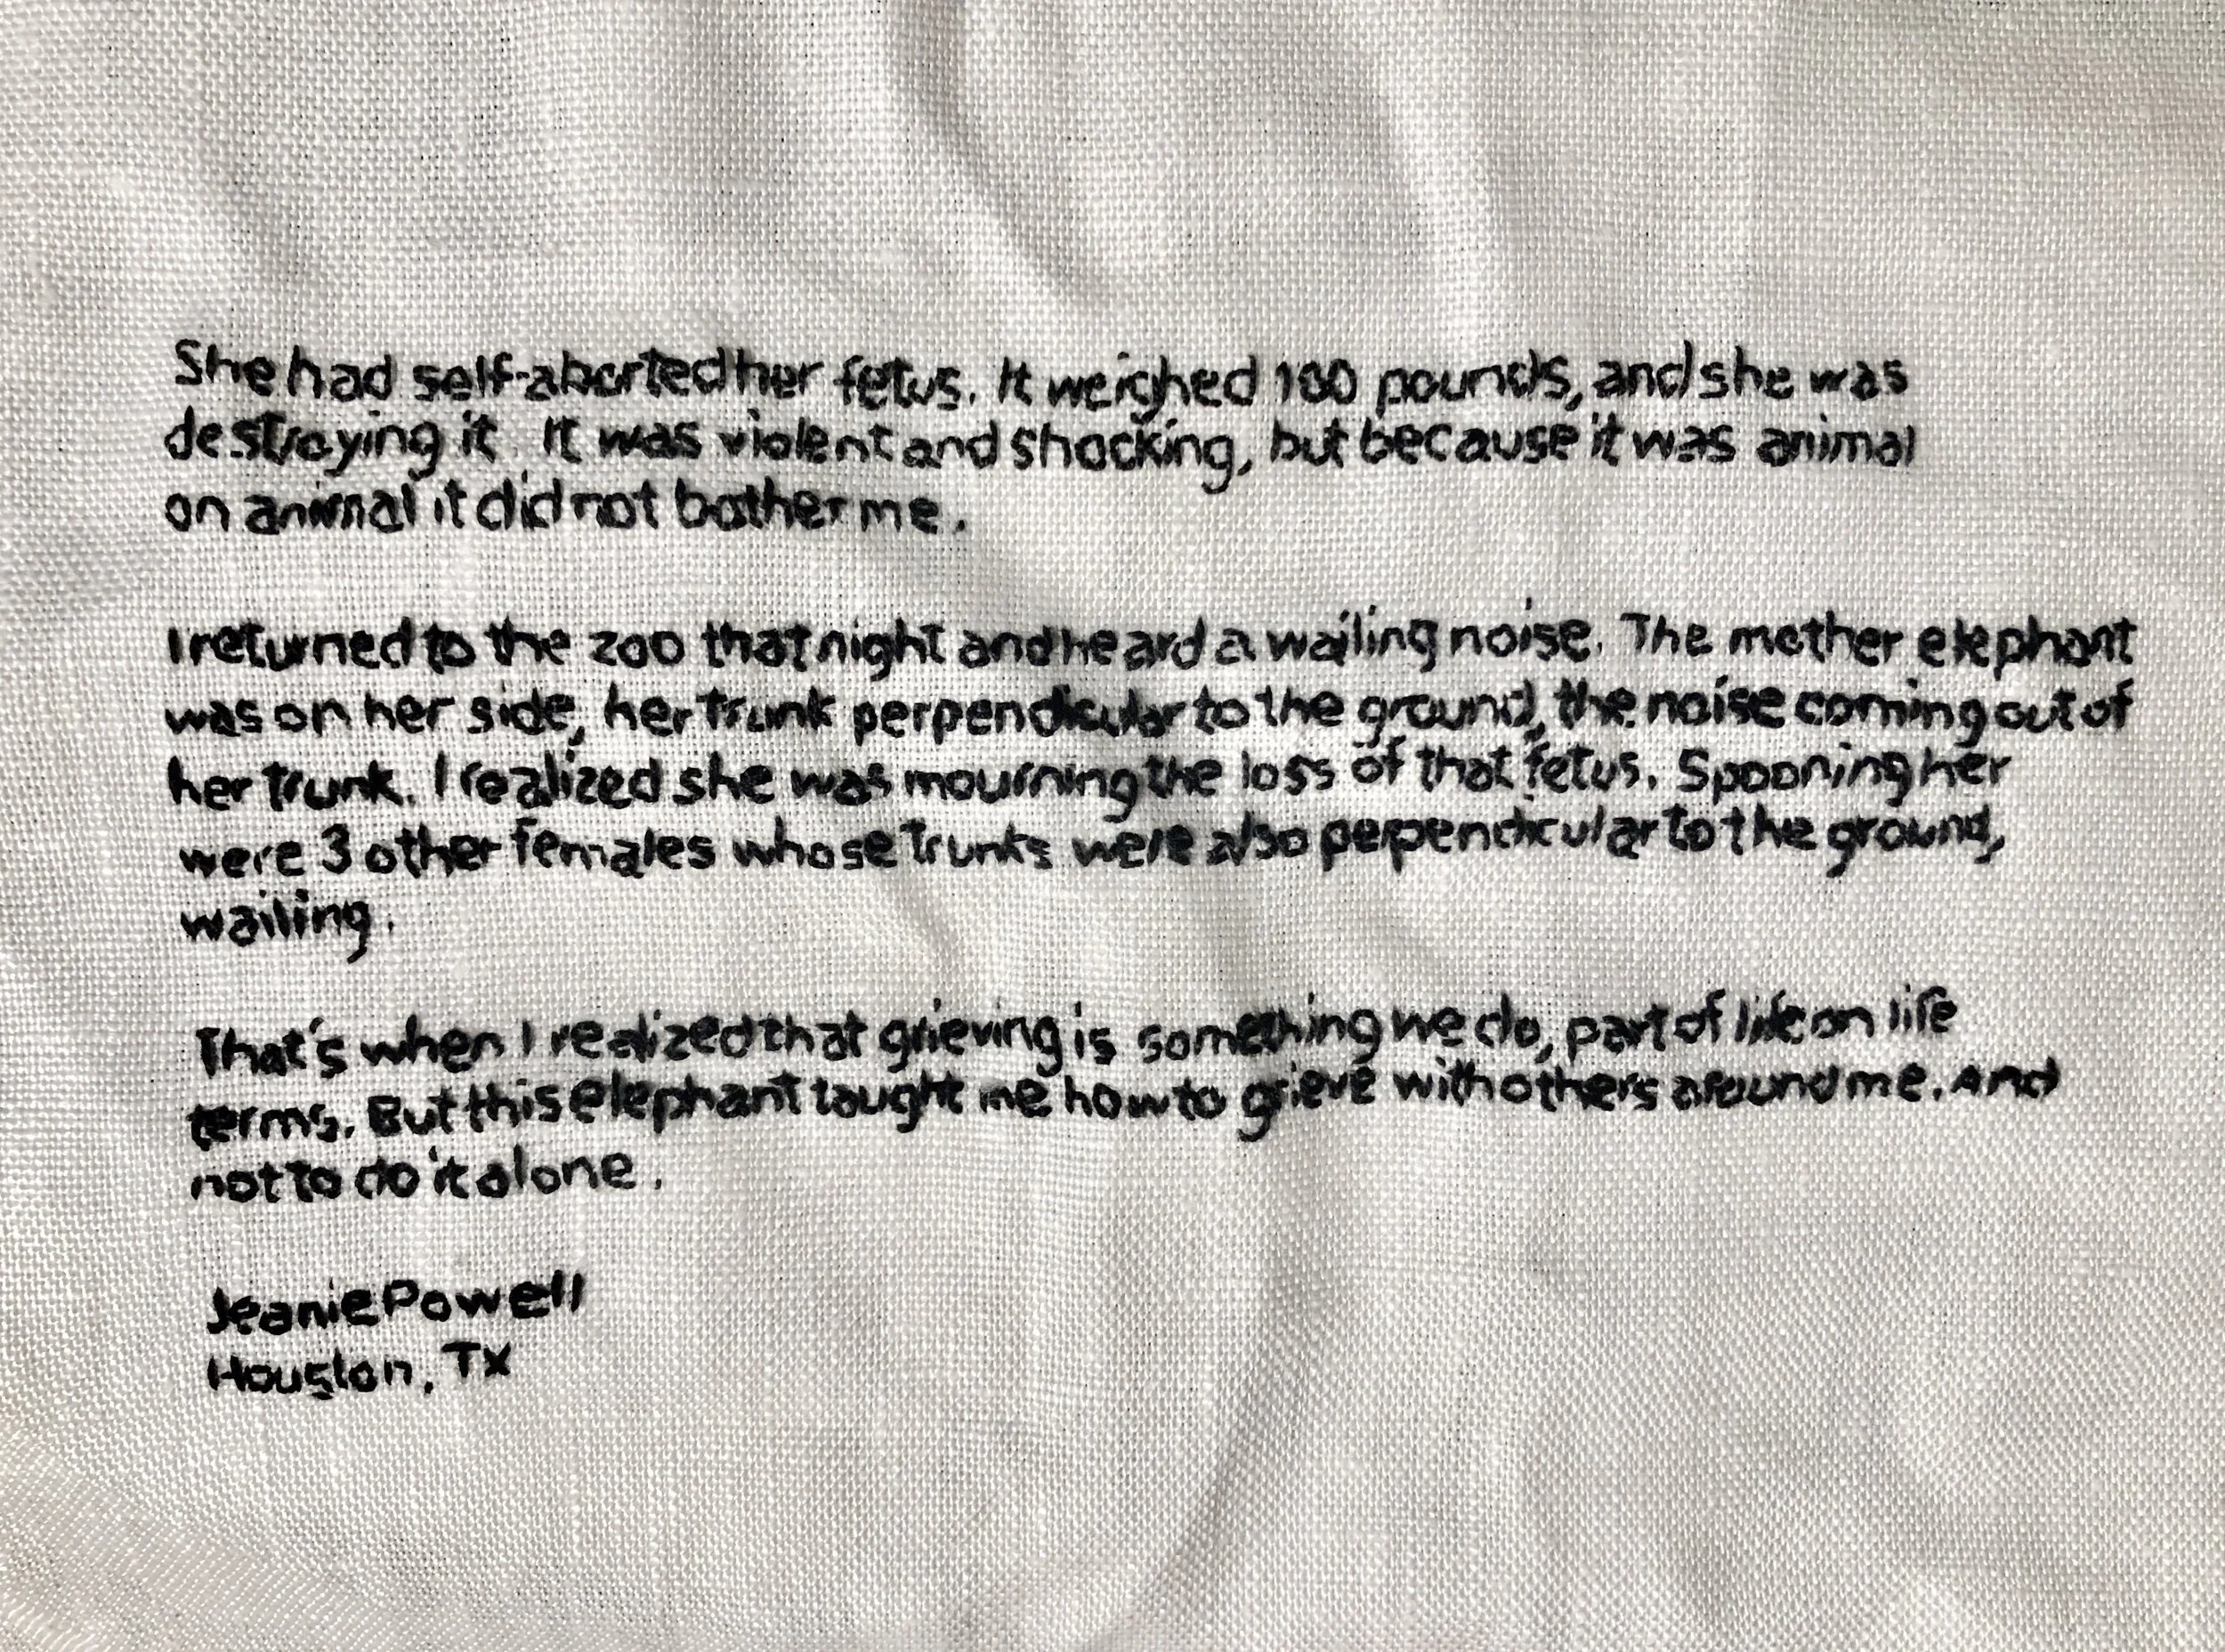 She had self-aborted her fetus. It weighed 100 pounds, and she was
destroying it. It was violent and shocking, but because it was animal
on animal it did not bother me.
I returned to the zoo that night and heard a wailing noise. The mother elephant
was on her side, her trunk perpendicular to the ground, the noise coming out of
her trunk. I realized she was mourning the loss of that fetus. Spooning her
were 3 other females whose trunks were also perpendicular to the ground,
wailing.
That's when I realized that grieving is something we do, part of life on life
terms. But this elephant taught me how to grieve with others around me. And
not to do it alone.
Jeanie Powell
Houston, TX